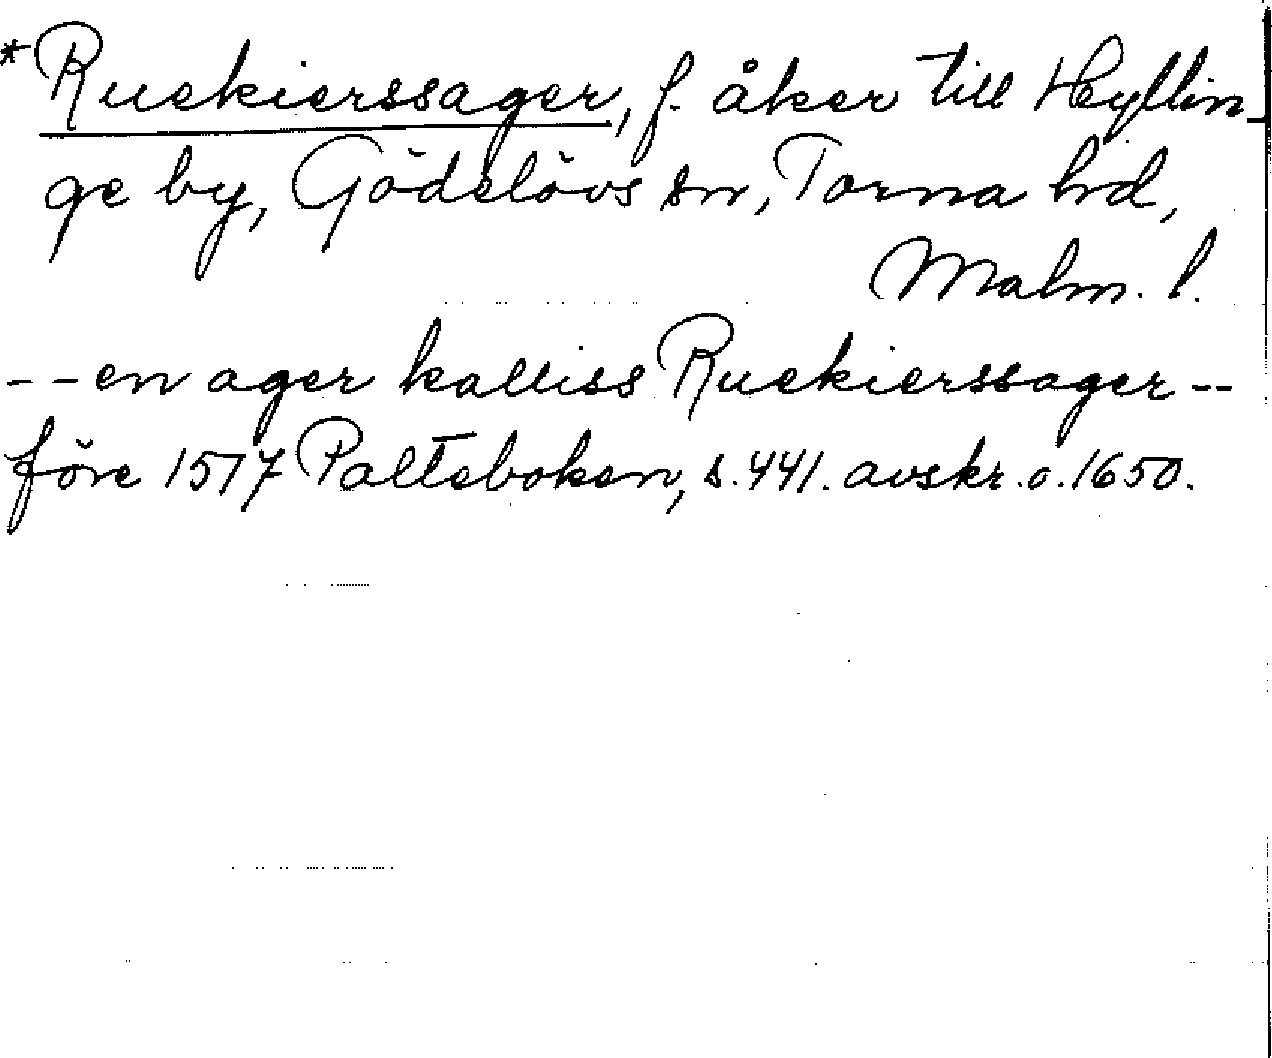 *Ruekierssager, f. åker till Heyllin-
ge by, Gödelövs sn, Torna hd,
Malm. l.
-- en ager kalliss Ruekierssager --
före 1517 Palteboken, s. 441. avskr. o. 1650.